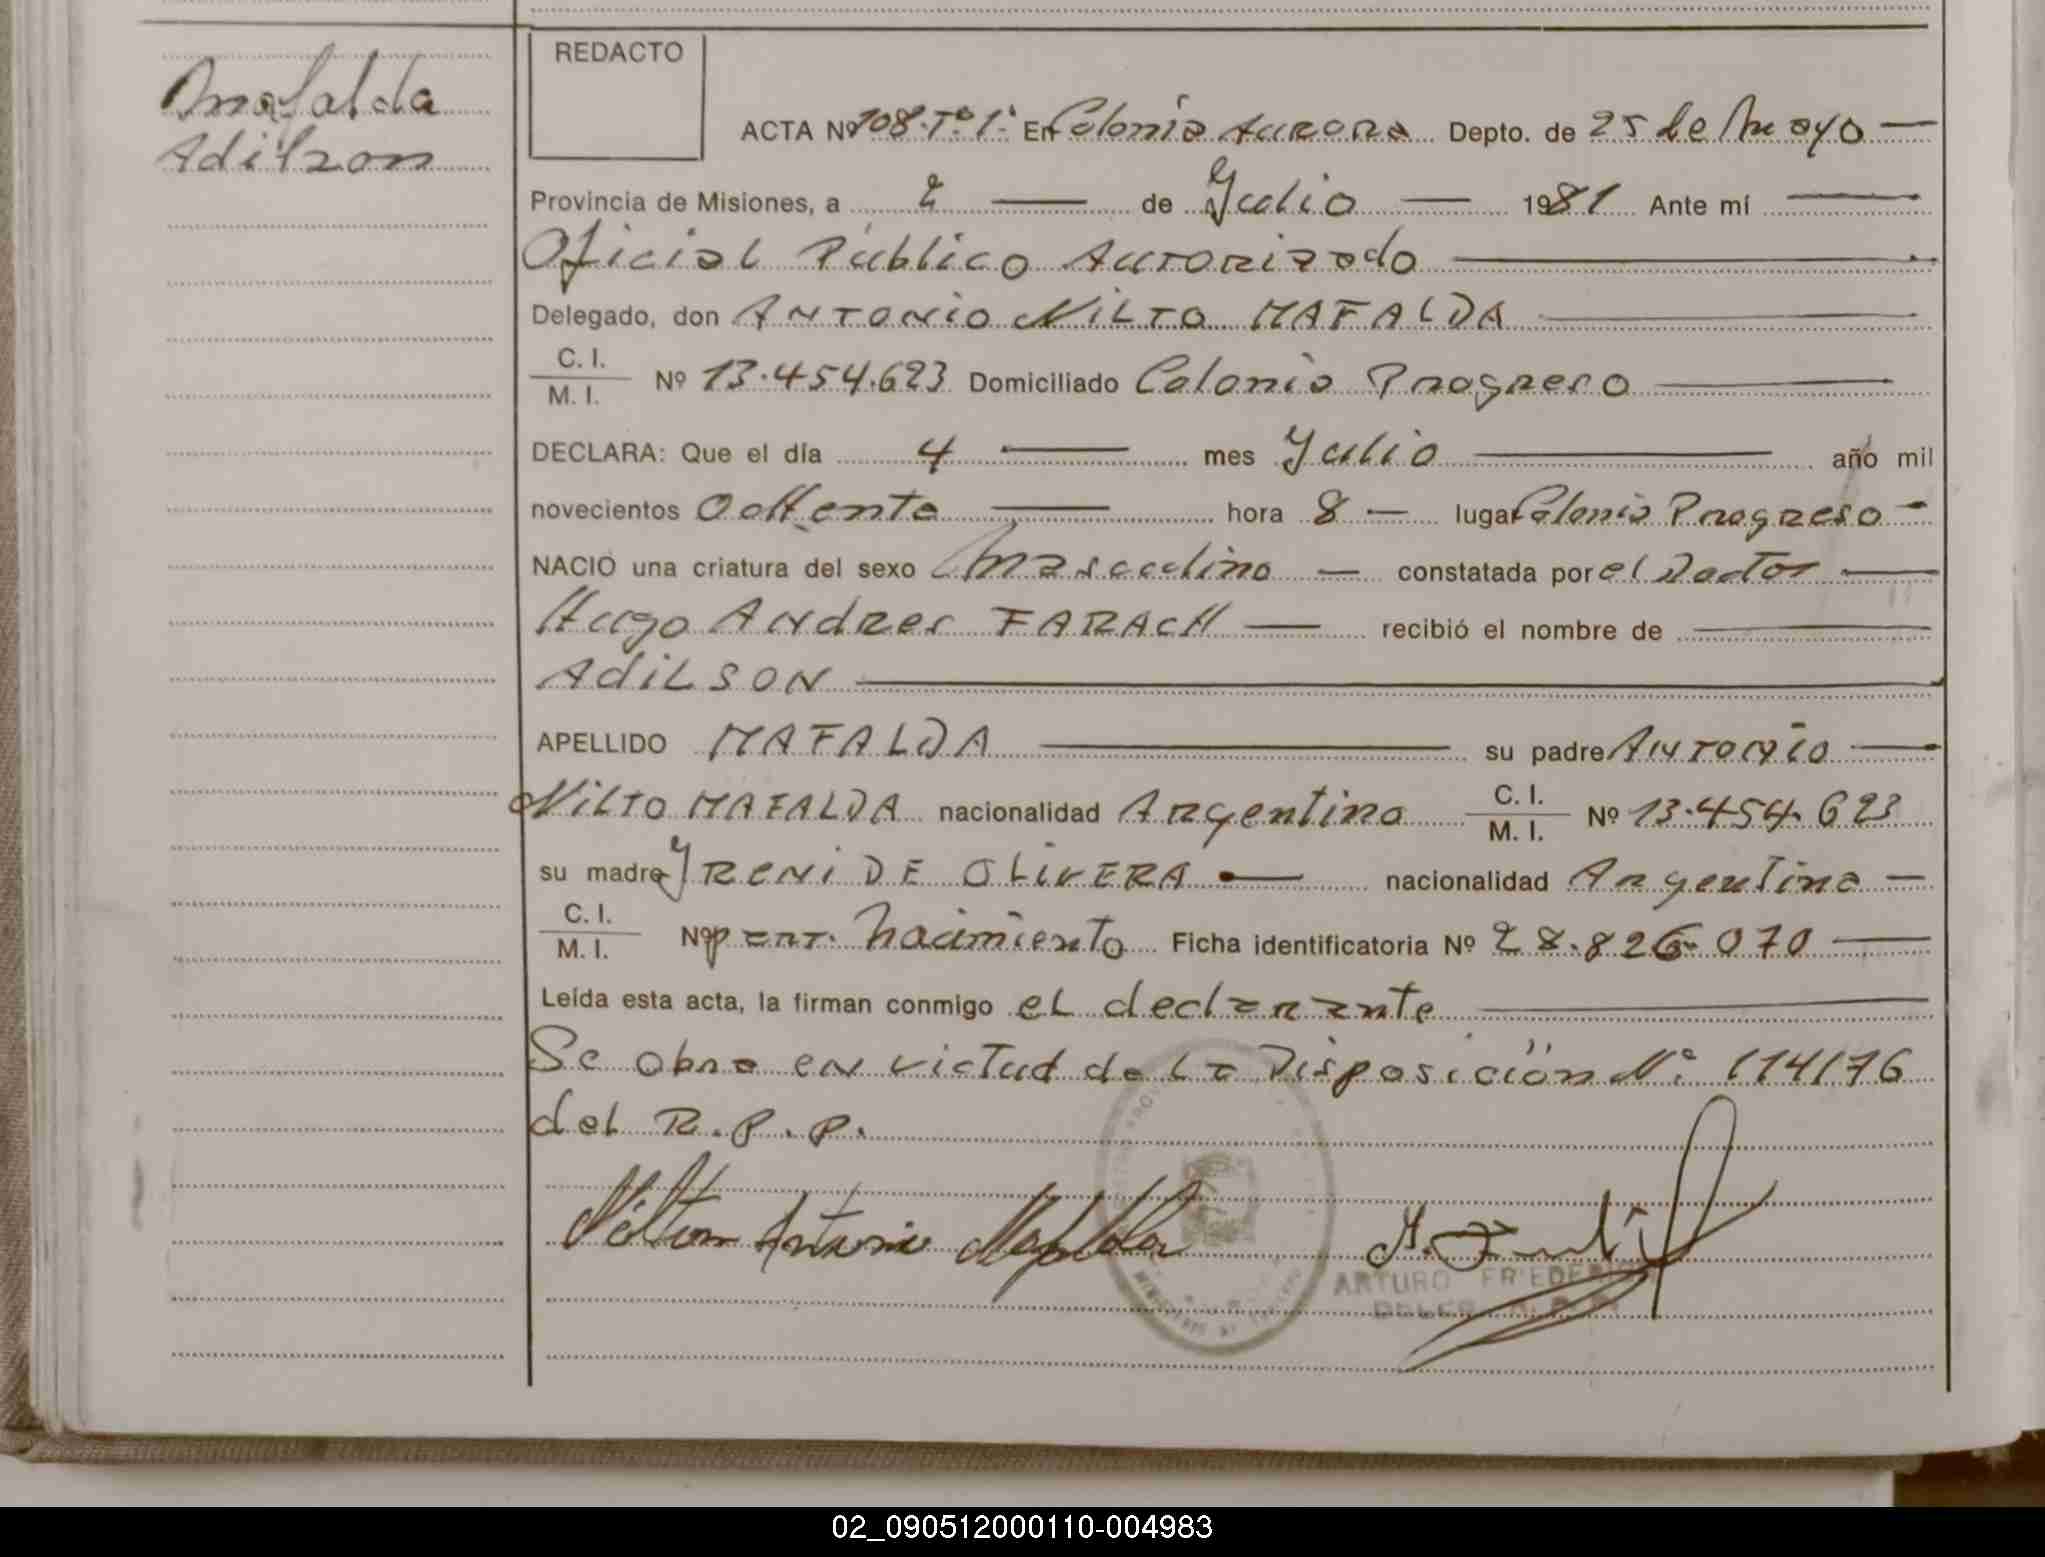 Mafalda
Adilson
REDACTO
ACTA Nº 108. Tº 1º En Colonia Aurora Depto. de 25 de Mayo —
Provincia de Misiones, a 2 — de Julio — 1981 Ante mí —
Oficial Público Autorizado —
Delegado, don ANTONIO NILTO MAFALDA —
C. I.
M. I. Nº 13.454.623 Domiciliado Colonia Progreso —
DECLARA: Que el día 4 — mes Julio — año mil
novecientos Ochenta — hora 8 — lugar Colonia Progreso —
NACIÓ una criatura del sexo Masculino — constatada por el Doctor —
Hugo Andres FARACH — recibió el nombre de —
ADILSON —
APELLIDO MAFALDA — su padre ANTONIO —
NILTO MAFALDA nacionalidad Argentina C. I.
M. I. Nº 13.454.623
su madre YRENI DE OLIVERA — nacionalidad Argentina —
C. I.
M. I. Nº part. Nacimiento Ficha identificatoria Nº 28.826.070 —
Leída esta acta, la firman conmigo el declarante —
Se obra en victud de la Disposición Nº 114/76
del R.P.P.
Nilton Antonio Mafalda
ARTURO
02_090512000110-004983